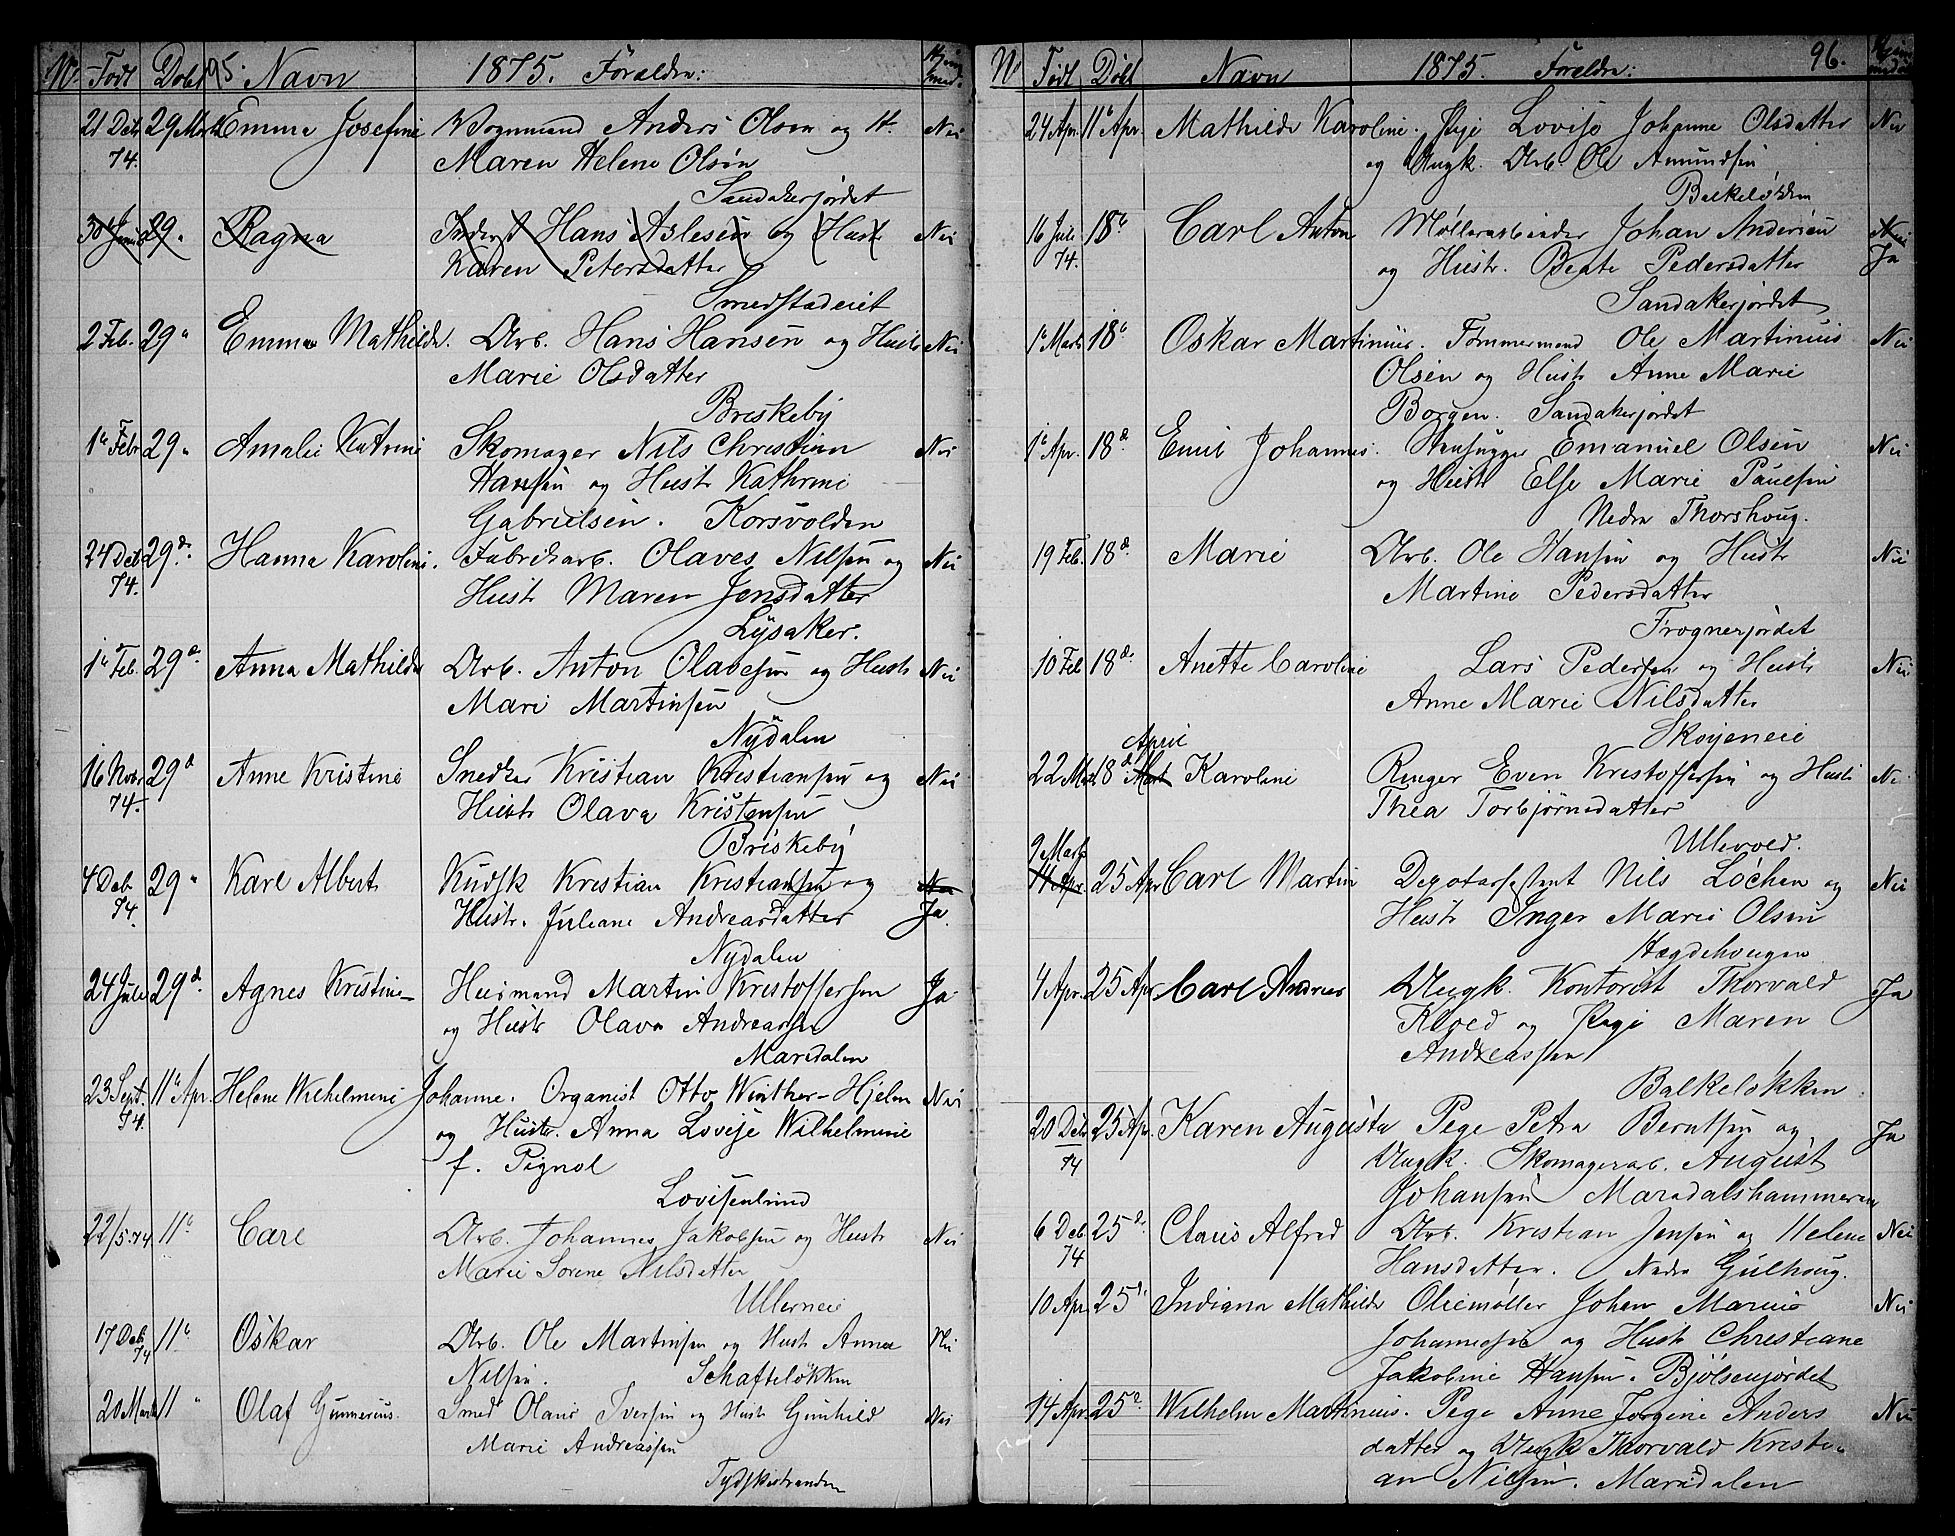 No Født Døbt 95. Navn 1875. Forældre: Hjem med.
21 Deb 29 Marts Emma Josefine Vognmand Anders Olsen og H. Nei
74. Maren Helene Olsen
Sandakerjordet
30 29 " Ragna Inderst Hans Aslesen og Hust Nei
Karen Petersdatter
Smedstadeiet
2 Feb. 29 " Emma Mathilde. Arb. Hans Hansen og Hustr Nei
Marie Olsdatter
Briskeby
1e Febr 29 " Amalie Katrine Skomager Nils Christian Nei
Hansen og Hustr Kathrine
Gabrielsen. Korsvolden
24 Deb 29 d. Hanna Karoline. Fabrikarb. Olaves Nilsen og Nei
74. Hustr Maren Jensdatter
Lysaker.
1e Feb. 29 d. Anna Mathilde Arb. Anton Olavesen og Hustr Nei
Mari Martinsen
Nydalen
16 Novbr 29 d Anne Kristine Snedker Kristian Kristiansen og Nei
74. Hustr Olava Kristensen
Briskeby
4 Deb 29 " Karl Albert Kudsk Kristian Kristiansen og Nei
74. Hustr. Juliane Andreasdatter Ja.
Nydalen
24 Juli 29 d. Agnes Kristine Husmand Martin Kristoffersen Ja
og Hustr Olava Andreassen
Maridalen
23 Sept. 11e Apr. Helene Wilhelmine Johanne. Organist Otto Winther-Hjelm Nei
74. og Hustr. Anna Lovise Wilhelmine
f. Pignol
Lovisenlund
22/5.74 11e Carl Arb. Johannes Jakobsen og Hustr Nei
Marie Sorene Nilsdatter
Ullerneie
17 Deb 11e Oskar Arb. Ole Martinsen og Hustr Anne Nei
74 Nilsen. Schafteløkken
20 Marts 11 " Olaf Gunnerius. Smed Olaus Iversen og Hustr Gunhild Nei
Marie Andreassen
Tydskestranden
No Født Døbt Navn 1875. Forældre: 96. Hjem
24 Apr. 11e Apr. Mathilde Karoline. Pige Lovise Johanne Olsdatter Nei
og Ungk. Arb. Ole Amundsen
Balkeløkken
16 Juli 18e Carl Anton Møllerarbeider Johan Andersen Nei
74. og Hustr. Beate Pedersdatter Ja
Sandakerjordet
1e Marts 18e Oskar Martinius. Tømmermand Ole Martinius Nei
Olsen og Hustr Anne Marie
Borgen. Sandakerjordet
1e Apr. 18 d. Emil Johannes. Stenhugger Emanuel Olsen Nei
og Hustr Else Marie Paulsen
Nedre Thorshoug.
19 Feb. 18 d. Marie Arb. Ole Hansen og Hustr Nei
Martine Pedersdatter
Frognerjordet
10 Feb 18 d. Anette Caroline Lars Pedersen og Hustr Nei
Anne Marie Nilsdatter
Skøyeneie
April
22 Mai 18 d Marts Karoline Ringer Even Kristoffersen og Hustr Nei
Thea Torbjørnsdatter
Ullevold.
9 Marts
14 Apr. 25 Apr Carl Martin Depotassistent Nils Løchen og Nei
Hustr Inger Marie Olsen
Hægdehougen
4 Apr. 25 Apr Carl Andreas Ungk. Kontorist Thorvald Ja
Kloed og Pige Maren
Andreassen
Balkeløkken
20 Deb 25 Apr. Karen Augusta Pige Petra Berntsen og Ja
74 Ungk. Skomagerarb. August
Johansen Maridalshammeren
6 Deb 25 d. Claus Alfred Arb. Kristian Jensen og Helene Nei
74 Hansdatter. Nedre Gulhoug.
10 Apr. 25 d. Indiana Mathilde Oliemøller Johan Marius Nei
Johannesen og Hustr Christiane
Jakobine Hansen. Bjølsenjordet
14 Apr. 25 d. Wilhelm Martinius. Pige Anne Jørgine Anders Nei
datter og Ungk Thorvald Kristi-
an Nilsen. Maridalen